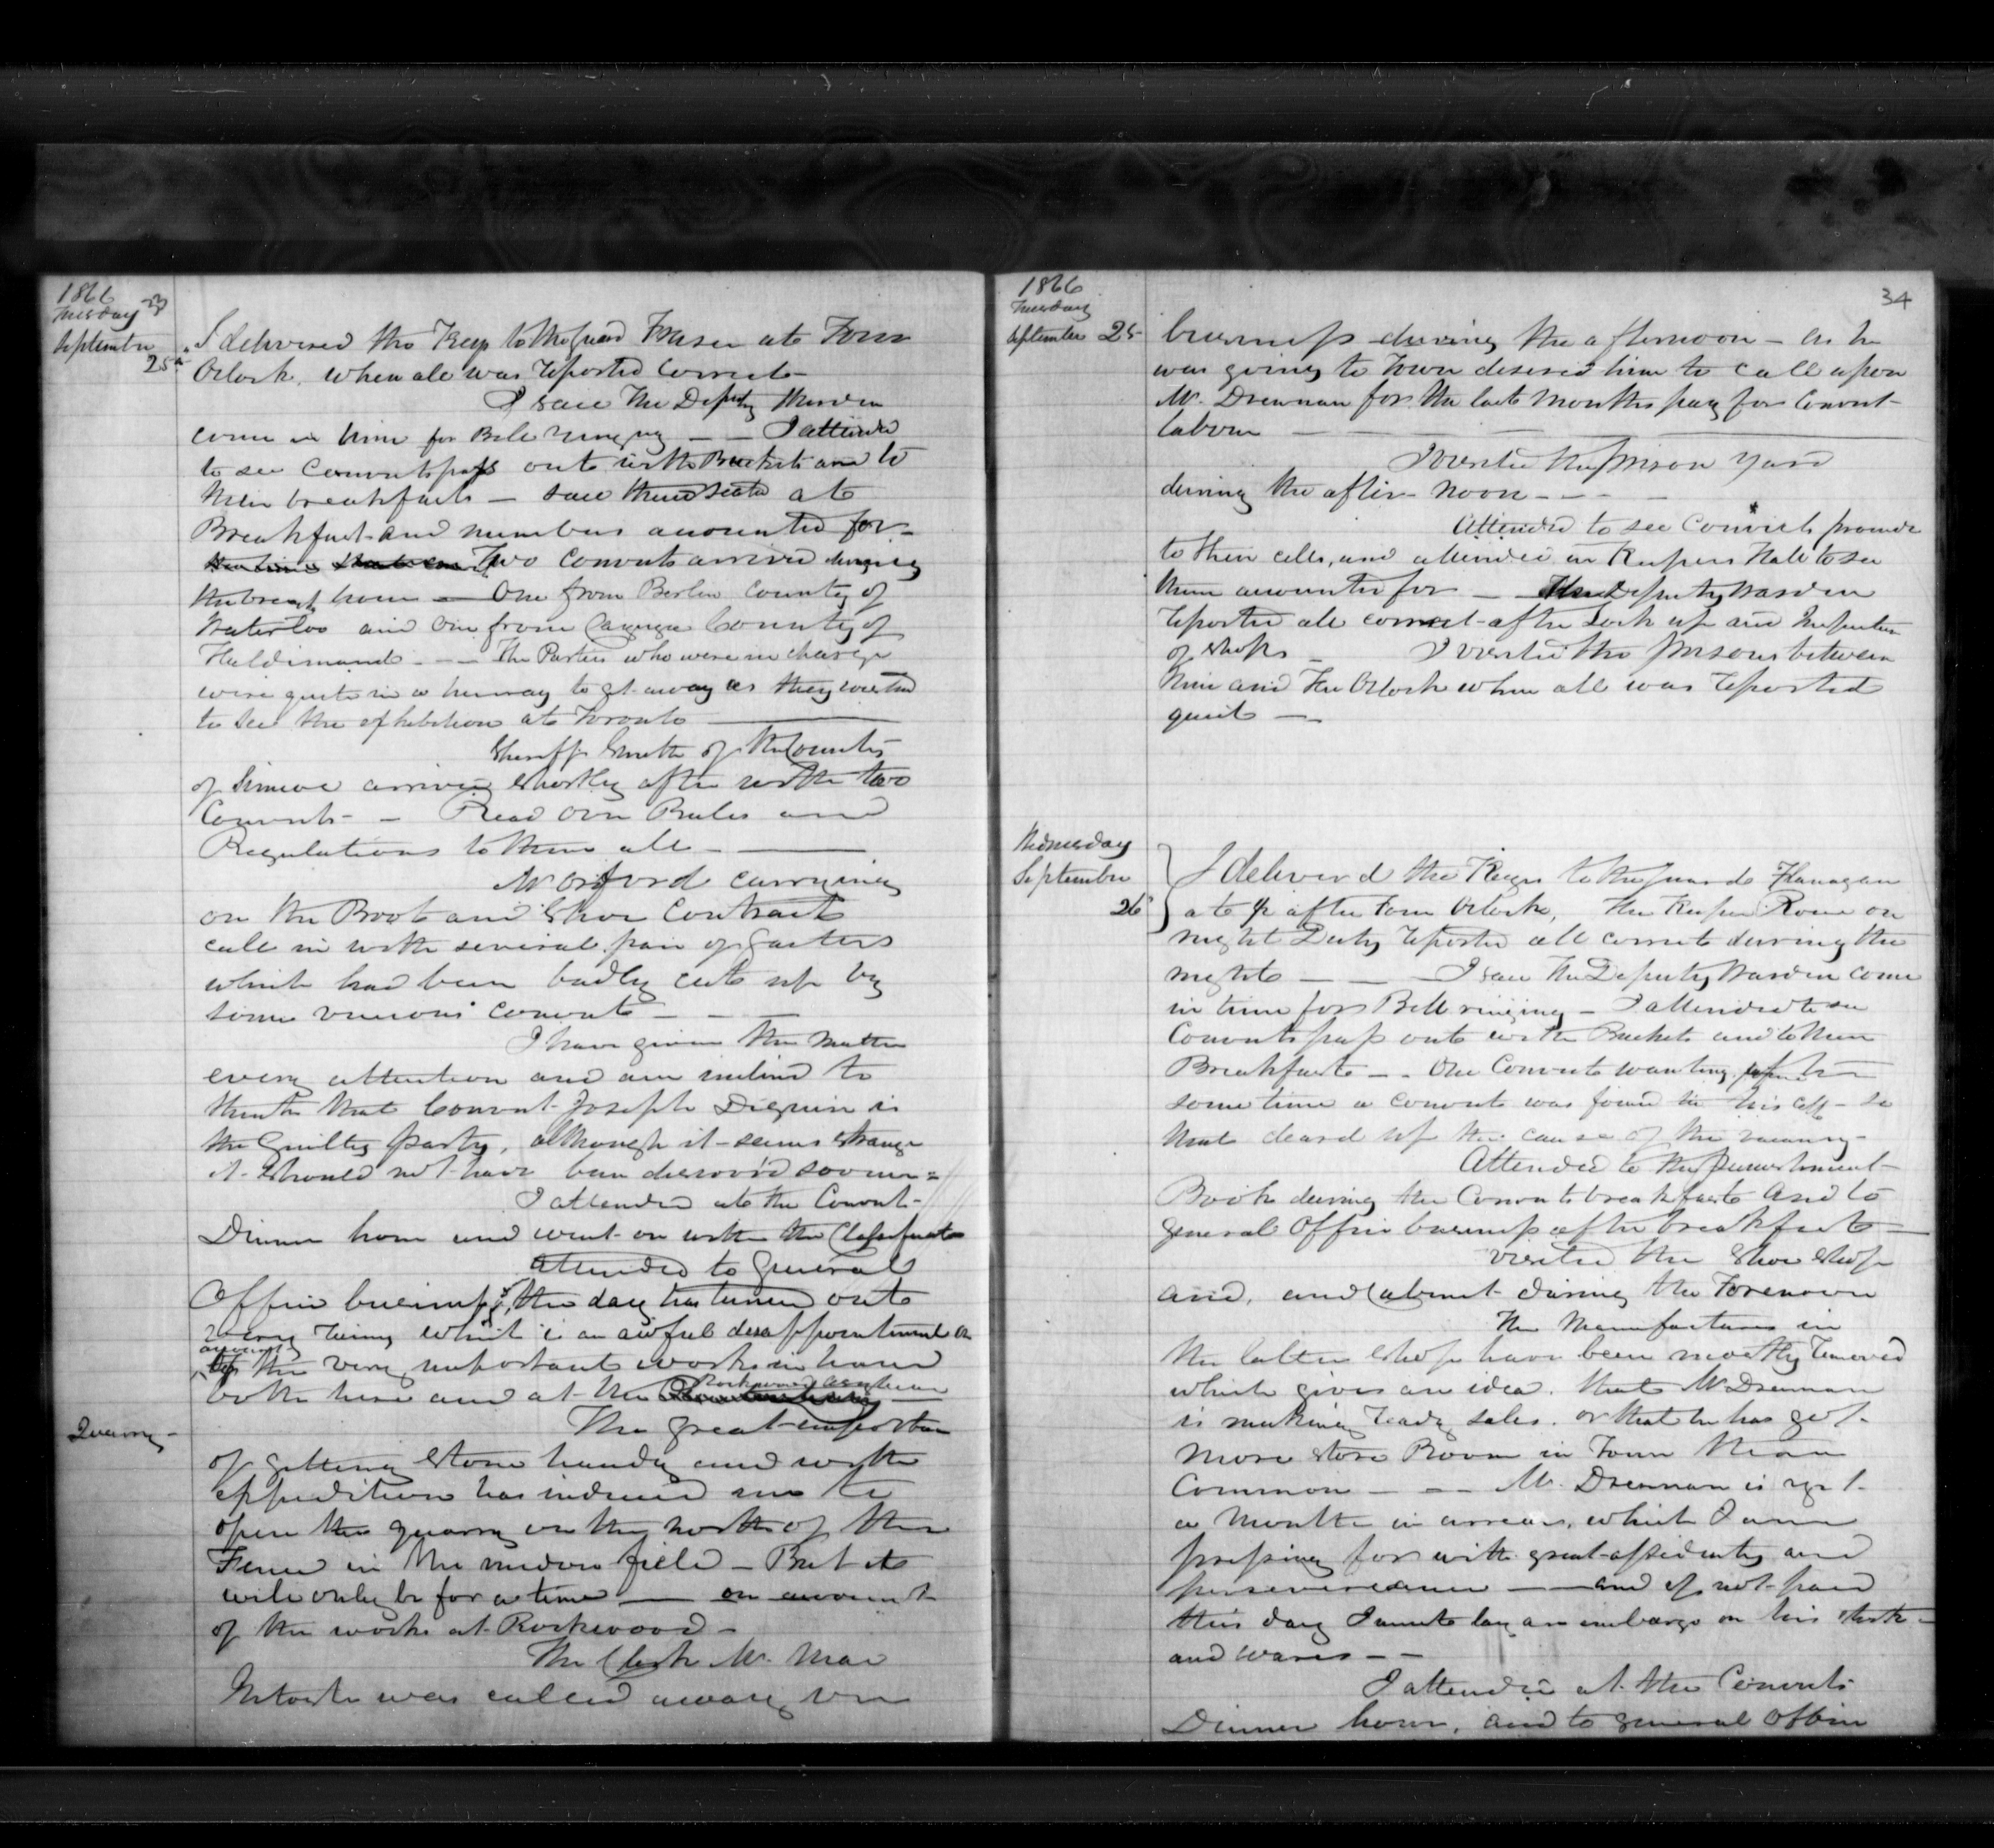 1866
Tuesday
September
25th
I delivered the Keys to the guard Fraser at Four
Oclock, when all was reported Correct
I saw The Deputy Warden
come in time for Bell ringing — — I attended
to see Convicts pass out with Buckets and to
their breakfasts — saw them seated at
Breakfast and numbers accounted for —
Two Convicts arrived during
the break hour — One from Berlin County of
Waterloo and One from Cayuga County of
Haldimand — — The Parties who were in charge
were quite in a hurry to get away as they wanted
to see the exhibition at Toronto —
Sheriff Smith of the County
of Simcoe arrived shortly after with two
Convicts — — Read over Rules and
Regulations to them all —
Mr Orsford carrying
on the Boot and Shoe Contract
call in with several pair of Gaiters
which had been badly cut up by
some vicious convict — — —
I have given the matter
every attention and am inclined to
think that Convict Joseph Dignum is
the Guilty party, although it seems strange
it should not have been discovered sooner =
I attended at the Convict
Dinner hour and went on with the
attended to General
Office business, the day has turned out
very rainy which is an awful disappointment on
account
of the very important works in hand
Rockwood Asylum
both here and at the
Quarry —
The great importance
of getting stone handy and with
expedition has induced me to
open the quarry on the north of the
Fence in the field — But it
will only be for a time — on account
of the works at Rockwood —
The Clerk Mr. Mac
Intosh was called away on
34
1866
Tuesday
September 25
business during the afternoon — As he
was going to Town desired him to call upon
Mr. Drennan for the last months pay for Convict
labour —
I visited the prison yard
during the after-noon — — — —
Attended to see Convicts promde
to their cells, and attended in Keepers Hall to see
them accounted for — — The Deputy Warden
reported all correct after Lock up and Inspection
of shops — I visited the prisons between
Nine and Ten Oclock when all was reported
quiet —
Wednesday
September
26
I delivered the Keys to the guard Flanagan
at ½ after Four Oclock, the Keeper Rowe on
night Duty reported all correct during the
night — — — I saw The Deputy Warden come
in time for Bell ringing — I attended to see
Convicts pass out with Buckets and to their
Breakfasts — — One Convict wanting,
some time a convict was found in his cell — so
that cleard up the cause of the vacancy —
Attended to the punishment
Book during the Convicts breakfasts And to
general Office business after breakfast —
visited the Shoe Shop
and, and Cabinet during the Forenoon
The Manufactures in
the latter shop have been mostly removed
which gives an idea. that Mr Drennan
is making ready sales. or that he has got
more store Room in Town than
Common — — — Mr. Drennan is yet
a month in arrears, which I am
pressing for with great assiduity and
perseverance — — and if not paid
this day I am to lay an embargo on his stock —
and wares — —
I attended at the Convicts
Dinner hour, and to general Office